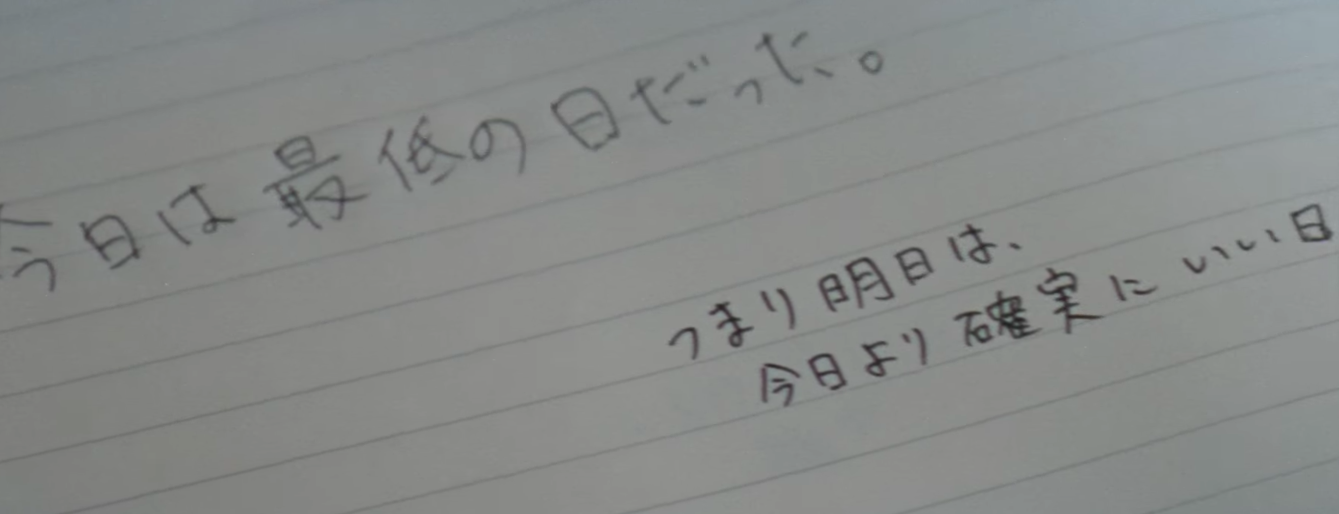 今日は最低の日だった。
つまり明日は、
今日より確実にいい日